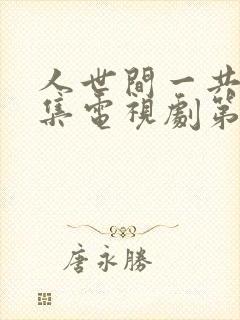 人世間一共
集電視劇第
唐永勝